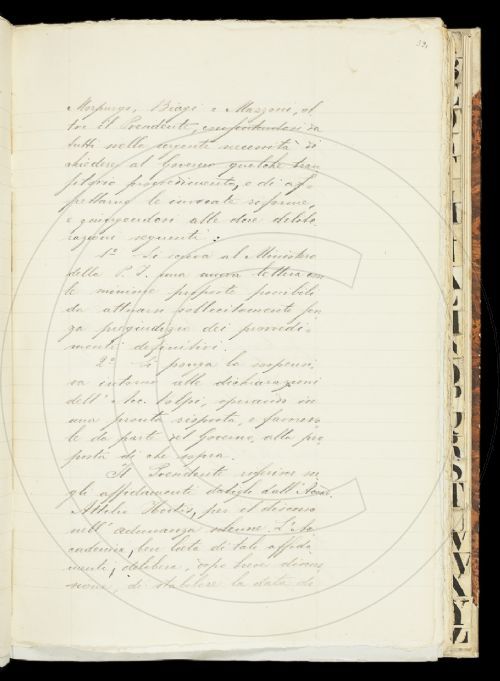 39,
Morpurgo, Biagi e Mazzoni, ol
tre il Presidente, concordandosi da
tutti nella urgente necessità di
chiedere al Governo qualche tran
sitorio provvedimento, e di af-
frettarne le invocate riforme,
e giungendosi alle due delibe
razioni seguenti:
1º Si scriva al Ministero
della P. I. una nuova lettera con
le minime proposte possibili
da attuarsi sollecitamente sen
za pregiudizio dei provvedi-
menti definitivi.
2º Si ponga la sospensi
va intorno alle dichiarazioni
dell' Acc. Volpi, sperando in
una pronta risposta, e favorevo
le da parte del Governo, alla pro
posta di che sopra.
Il Presidente riferisce su
gli affidamenti datigli dall'
Attilio Hortis, per il discorso
nell' adunanza solenne. L'Ac
cademia, ben lieta di tale affida
mento, delibera, dopo breve discus
sione, di stabilire la data di